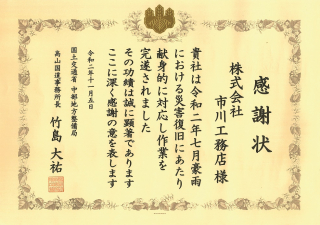 感謝状
株式会社
市川工務店 様
貴社は令和二年七月豪雨
における災害復旧にあたり
献身的に対応し作業を
完遂されました
その功績は誠に顕著であります
ここに深く感謝の意を表します
令和二年十一月五日
国土交通省 中部地方整備局
高山国道事務所長 竹島 大祐